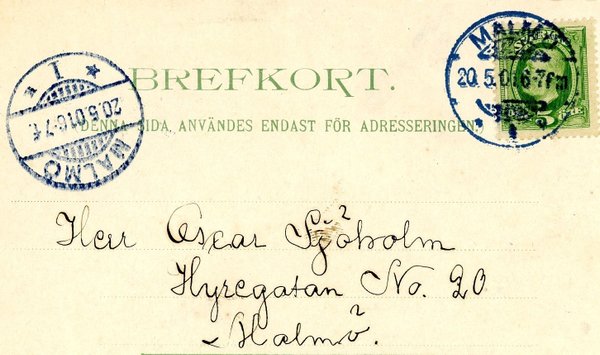 MALMÖ
20.5.01.6-7 f.m
1
20.5.01.6-7 f.
MALMÖ
BREFKORT.
(DENNA SIDA, ANVÄNDES ENDAST FÖR ADRESSERINGEN.)
Herr Oscar Sjöholm
Hyregatan No. 20
Malmö.